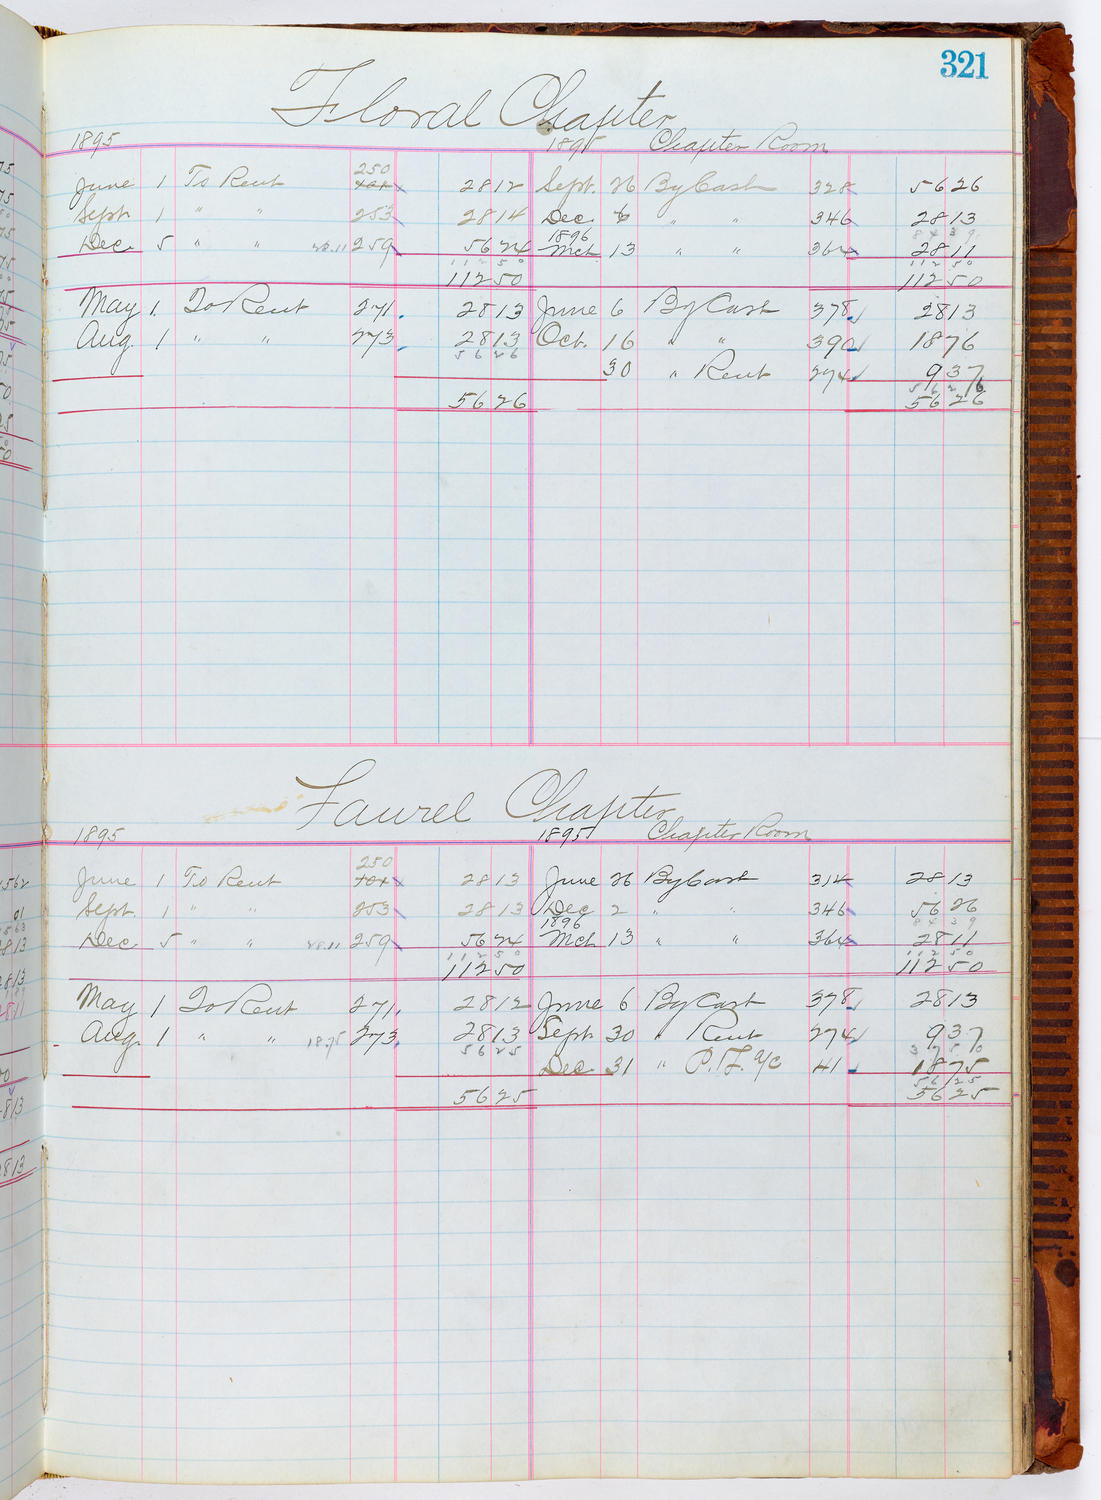 321
Floral Chapter
1895 1895 Chapter Room
250
June 1 To Rent 101 28 12 Sept. 26 By Cash 328 56 26
Sept. 1 " " 253 28 14 Dec. 6 " " 346 28 13
1896 84 39
Dec. 5 " " 28.11 259 56 24 Mch 13 " " 364 28 11
112 50 112 50
112 50 112 50
May 1. To Rent 271. 28 13 June 6 By Cash 378 28 13
Aug. 1 " " 273. 28 13 Oct. 16 " " 390 18 76
56 26 30 " Rent 274 9 37
56 26
56 26 56 26
Laurel Chapter
1895 1895 Chapter Room
250
June 1 To Rent 101 28 13 June 26 By Cash 314 28 13
Sept. 1 " " 253 28 13 Dec 2 " " 346 56 26
1896 84 39
Dec. 5 " " 28.11 259 56 24 Mch 13 " " 364 28 11
112 50 112 50
112 50 112 50
May 1 To Rent 271. 28 12 June 6 By Cash 378 28 13
Aug. 1 " " 18.75 273. 28 13 Sept 30 " Rent 274 9 37
56 25 37 50
Dec 31 " P.&L. a/c 41 18 75
56 25
56 25 56 25